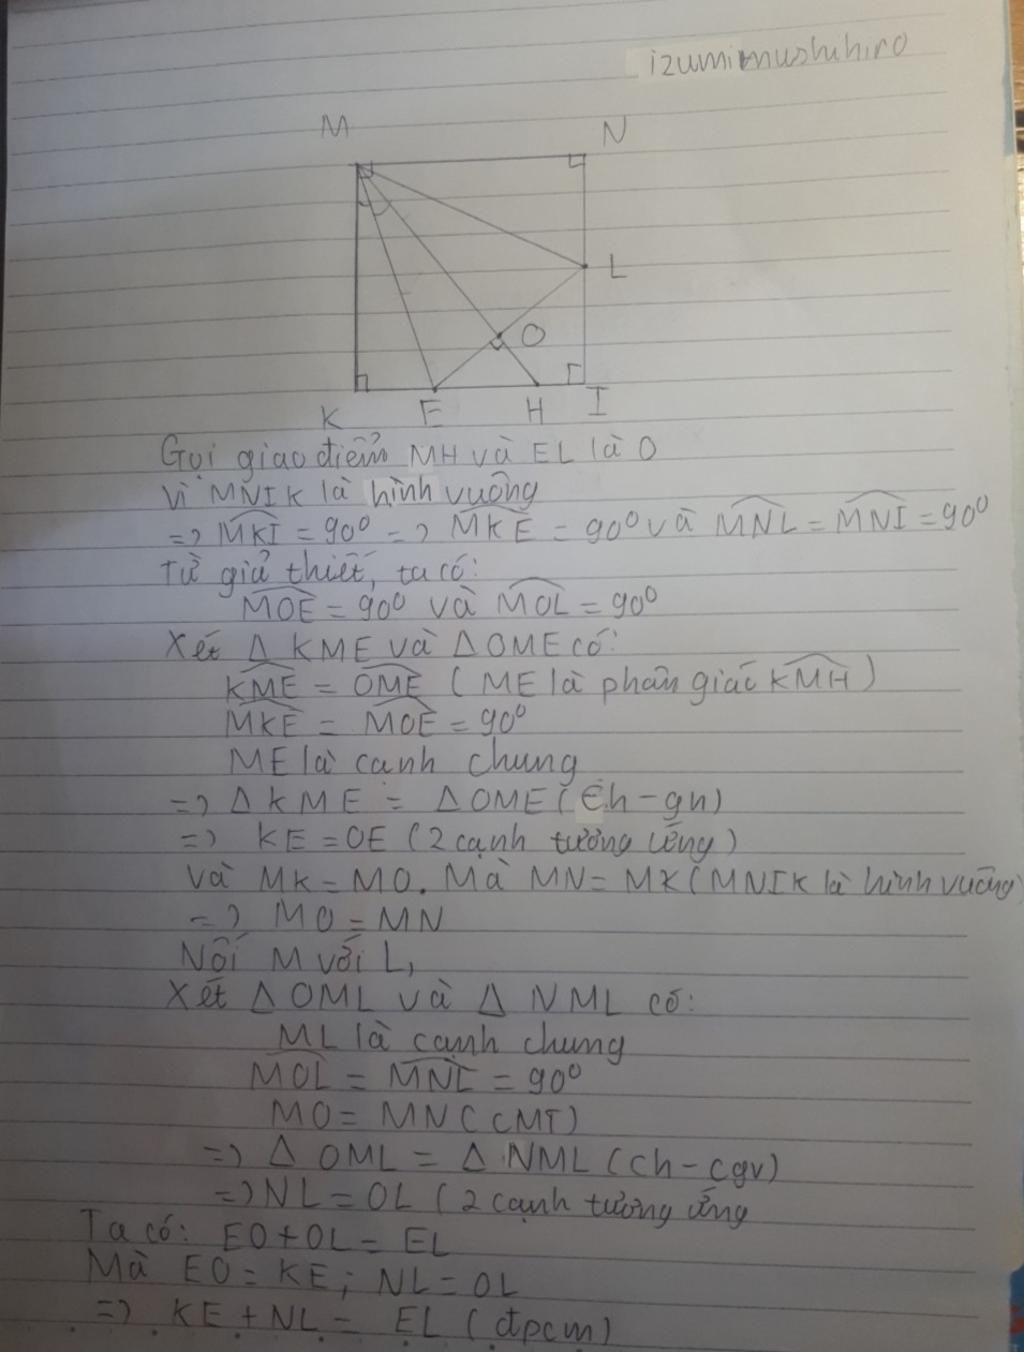 izumimushihiro
M N
L
O
K E H I
Gọi giao điểm MH và EL là O
Vì MNIK là hình vuông
=> MKI = 90⁰ => MKE = 90⁰ và MNL = MNI = 90⁰
Từ giả thiết, ta có:
MOE = 90⁰ và MOL = 90⁰
Xét Δ KME và Δ OME có:
KME = OME (ME là phân giác KMH)
MKE = MOE = 90⁰
ME là cạnh chung
=> Δ KME = Δ OME (Ch - gn)
=> KE = OE (2 cạnh tương ứng)
Và MK = MO. Mà MN = MK (MNIK là hình vuông)
=> MO = MN
Nối M với L,
Xét Δ OML và Δ NML có:
ML là cạnh chung
MOL = MNL = 90⁰
MO = MN (CMT)
=> Δ OML = Δ NML (ch - cgv)
=> NL = OL (2 cạnh tương ứng
Ta có: EO + OL = EL
Mà EO = KE; NL = OL
=> KE + NL = EL (đpcm)